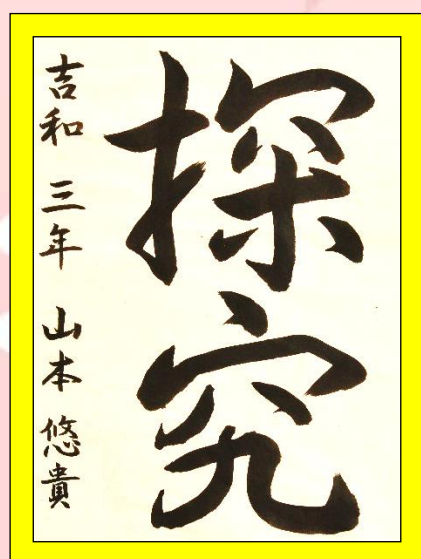 探究
吉和 三年 山本 悠貴